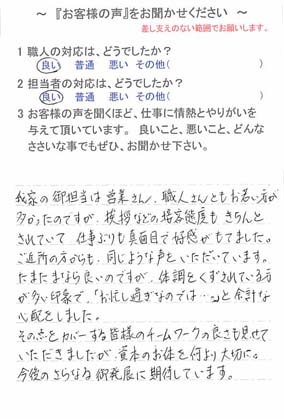 ～『お客様の声』をお聞かせください～
差し支えのない範囲でお願いします。
1 職人の対応は、どうでしたか？
良い 普通 悪い その他( )
2 担当者の対応は、どうでしたか？
良い 普通 悪い その他( )
3 お客様の声を聞くほど、仕事に情熱とやりがいを
与えて頂いています。良いこと、悪いこと、どんな
ささいな事でもぜひ、お聞かせ下さい。
我家の御担当は営業さん、職人さんともお若い方が
多かったのですが、挨拶などの接客態度もきちんと
されていて、仕事ぶりも真面目で好感がもてました。
ご近所の方からも、同じような声をいただいています。
たまたまなら良いのですが、体調をくずされている方
が多い印象で、「お忙し過ぎなのでは…」と余計な
心配をしました。
その点をカバーする皆様のチームワークの良さも見せて
いただきましたが、資本のお体を何より大切に。
今後のさらなる御発展に期待しています。